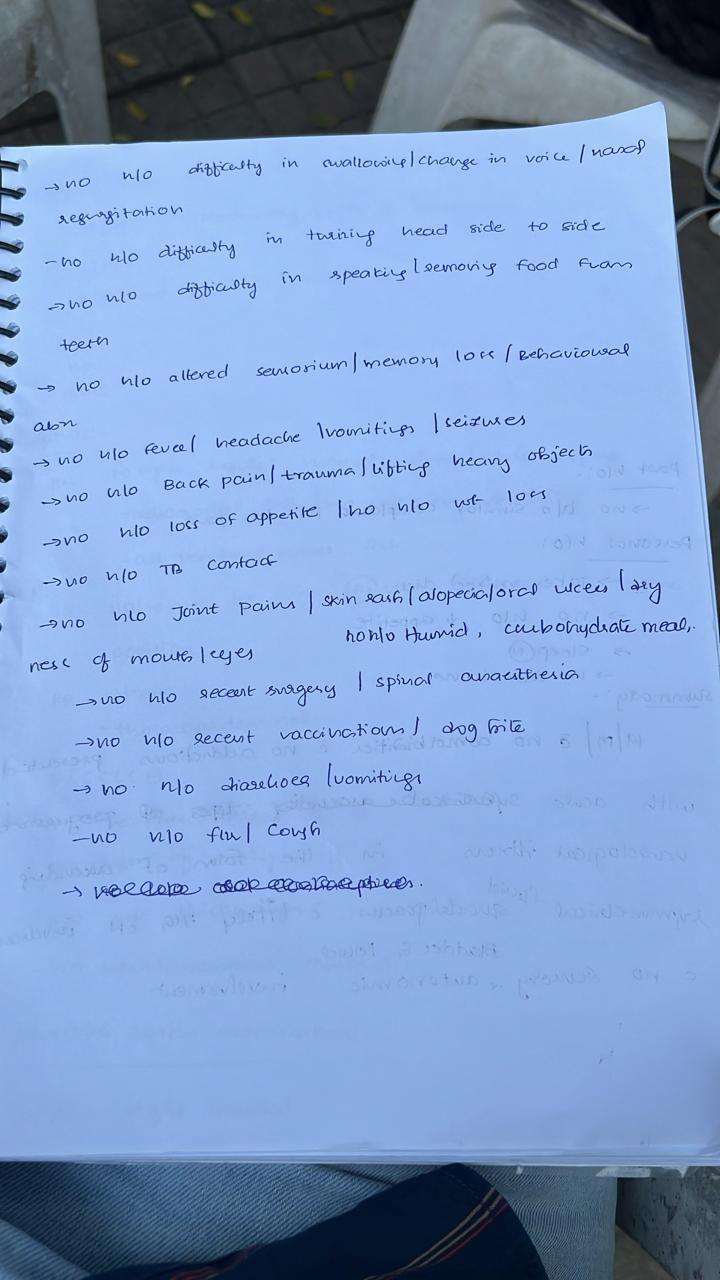 → no h/o difficulty in swallowing/change in voice / nasal
regurgitation
- no h/o difficulty in turning head side to side
→ no h/o difficulty in speaking/removing food from
teeth
→ no h/o altered sensorium/memory loss / Behavioural
abn
→ no h/o fever/ headache /vomitings /seizures
→ no h/o Back pain/trauma/lifting heavy objects
→ no h/o loss of appetite /no h/o wt loss
→ no h/o TB contact
→ no h/o Joint pains / skin rash/alopecia/oral ulcers /dry
ness of mouth/eyes no h/o Humid, carbohydrate meal,.
→ no h/o recent surgery / spinal anaesthesia
→ no h/o recent vaccinations/ dog bite
→ no h/o diarrhoea /vomitings
- no h/o flu/ cough
→